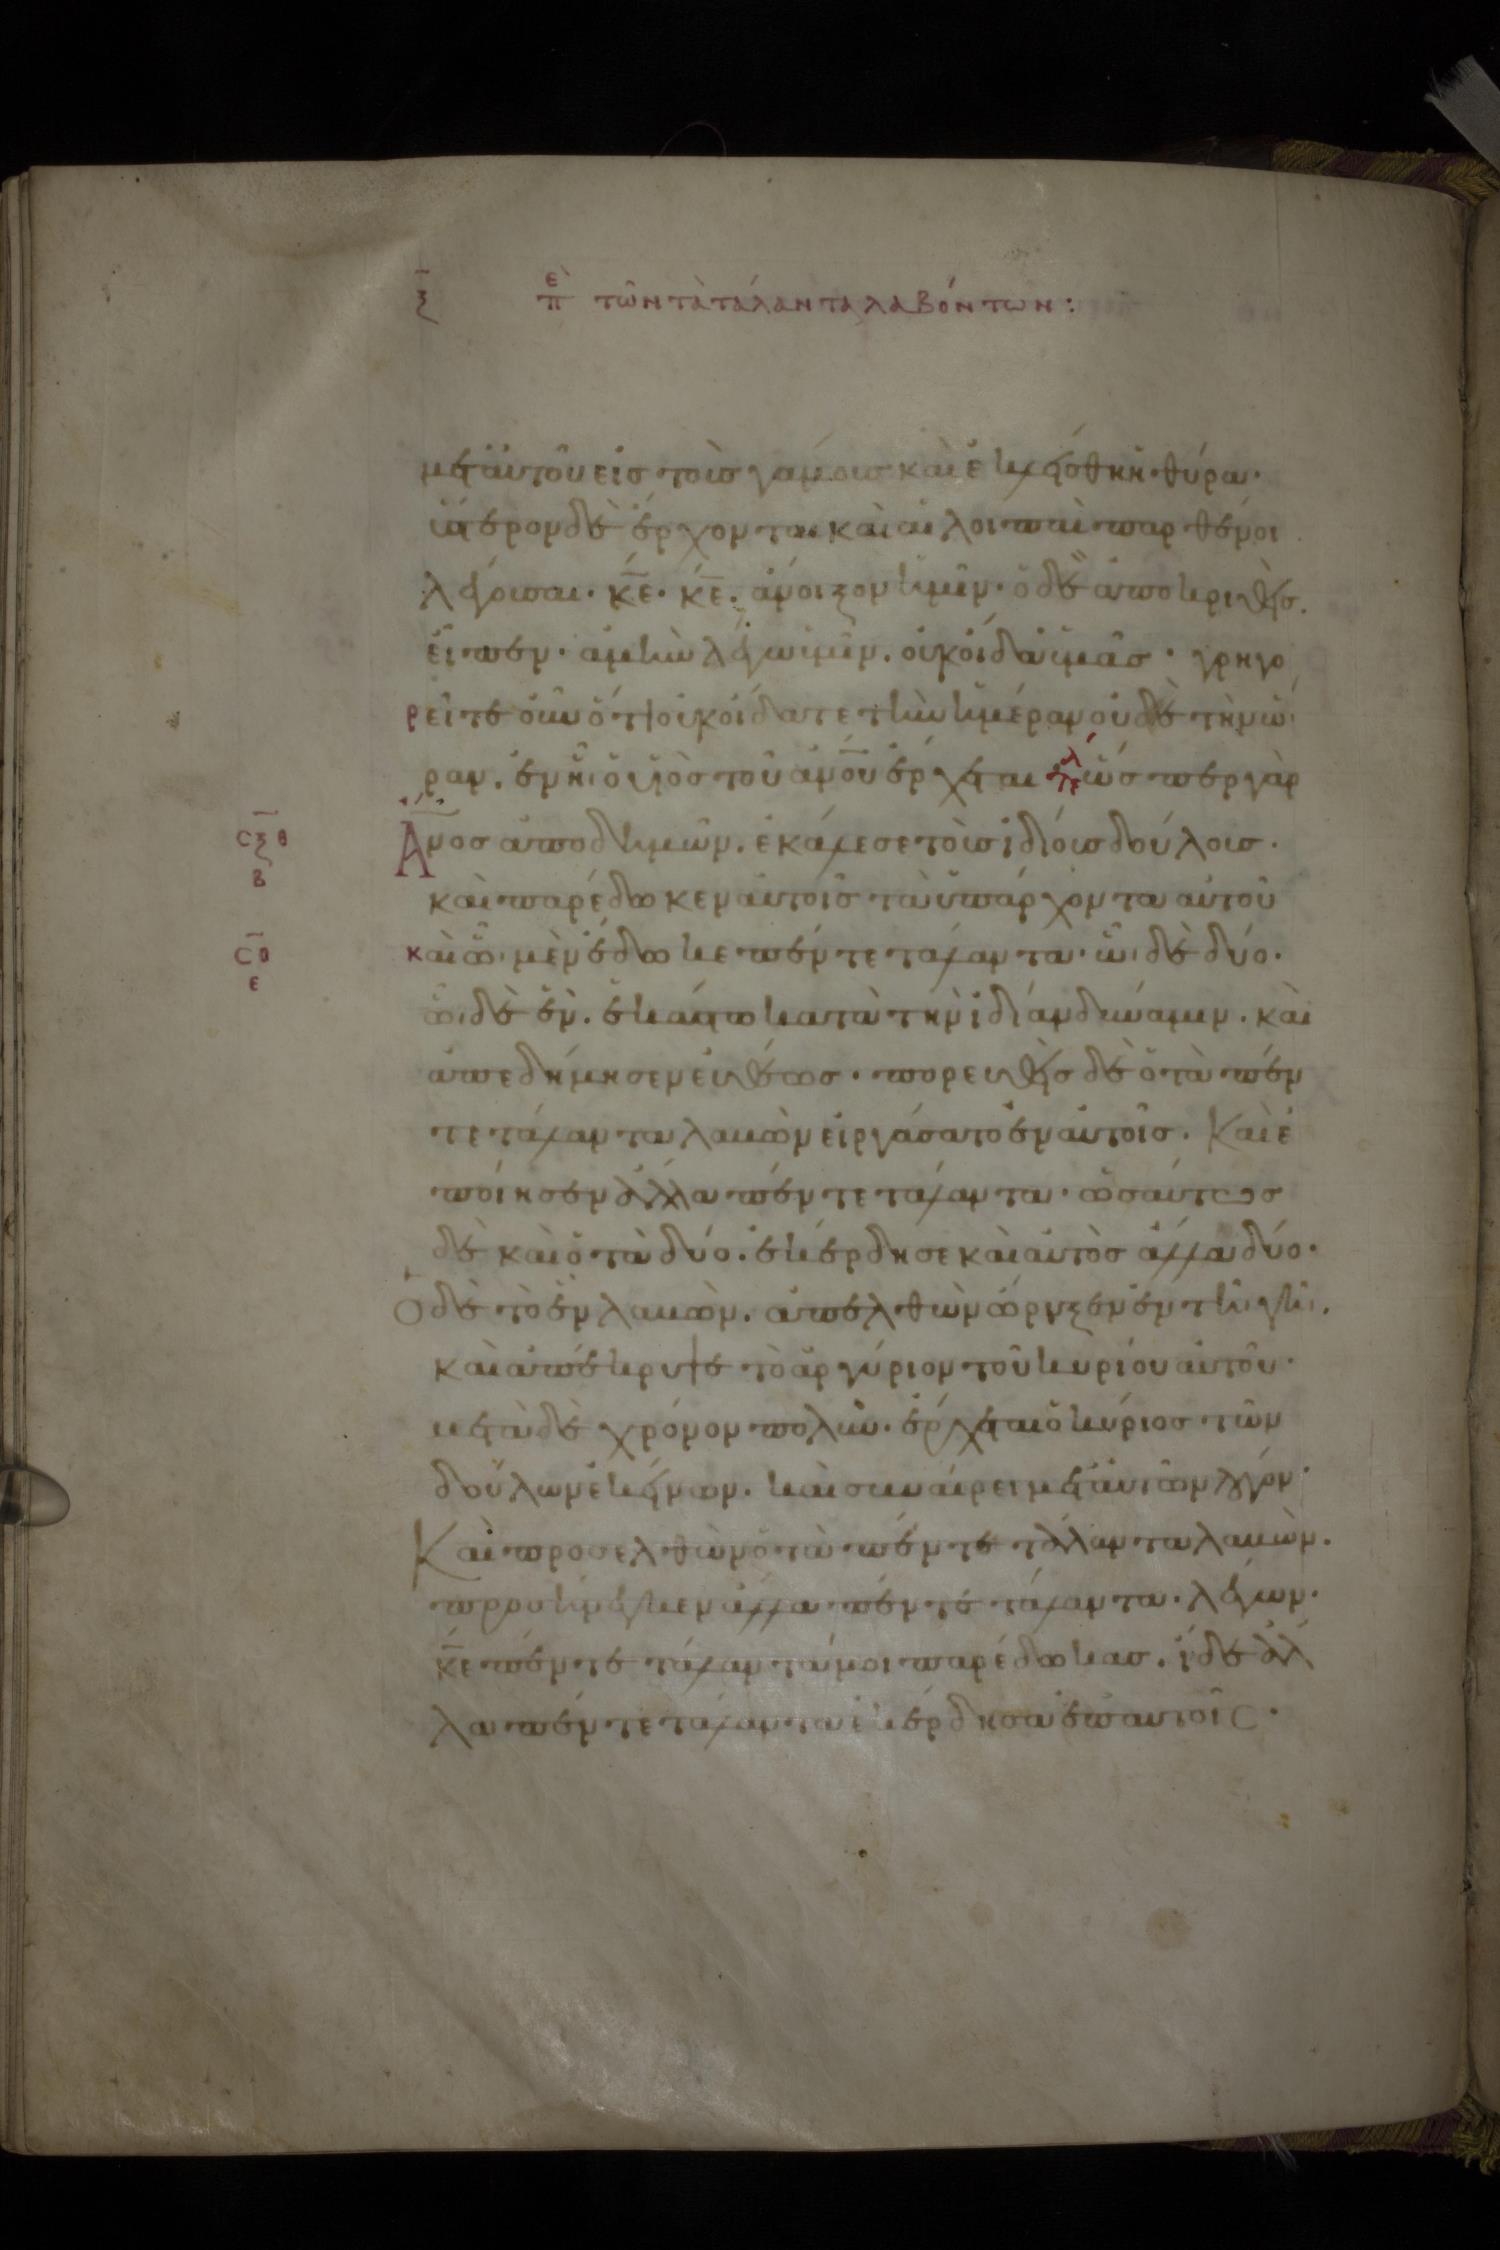 ξ̅ πὲ τῶν τὰ τάλαντα λαβόντων:
μετ' αὐτοῦ εἰς τοὺς γάμους καὶ ἐκλείσθη ἡ θύρα·
ὕστερον δὲ ἔρχονται καὶ αἱ λοιπαὶ παρθένοι
λέγουσαι· κ̅ε̅· κ̅ε̅. ἄνοιξον ἡμῖν· ὁ δὲ ἀποκριθεὶς.
εἶπεν· ἀμὴν λέγω ὑμῖν. οὐκ οἶδα ὑμᾶς· γρηγο
ρεῖτε οὖν ὅτι οὐκ οἴδατε τὴν ἡμέραν οὐδὲ τὴν ὥ
ραν. ἐν ᾗ ὁ υἱὸς τοῦ ἀν̅ο̅υ̅ ἔρχεται ὥσπερ γὰρ
Α̅νος ἀποδημῶν. ἐκάλεσε τοὺς ἰδίους δούλους·
ϲξθ
β
καὶ παρέδωκεν αὐτοῖς τὰ ὑπάρχοντα αὐτοῦ
καὶ ᾧ μὲν ἔδωκε πέντε τάλαντα· ᾧ δὲ δύο·
ϲο
ε
ᾧ δὲ ἕν. ἑκάστω κατὰ τὴν ἰδίαν δύναμιν. καὶ
ἀπεδήμησεν εὐθέως· πορευθεὶς δὲ ὁ τὰ πέν
τε τάλαντα λαβὼν εἰργάσατο ἐν αὐτοῖς. Καὶ ἐ
ποίησεν ἄλλα πέντε τάλαντα· ὡσαύτως
δὲ καὶ ὁ τὰ δύο. ἐκέρδησε καὶ αὐτὸς ἄλλα δύο·
Ὁ δὲ τὸ ἓν λαβὼν. ἀπελθὼν ὤρυξεν ἐν τῇ γῇ.
καὶ ἀπέκρυψε τὸ ἀργύριον τοῦ κυρίου αὐτοῦ·
μετὰ δὲ χρόνον πολὺν. ἔρχεται ὁ κύριος τῶν
δούλων ἐκείνων. καὶ συναίρει μετ' αὐτῶν λόγον·
Καὶ προσελθὼν ὁ τὰ πέντε τάλαντα λαβὼν.
προσήνεγκεν ἄλλα πέντε τάλαντα· λέγων·
κ̅ε̅ πέντε τάλαντά μοι παρέδωκας. ἴδε ἄλ
λα πέντε τάλαντα ἐκέρδησα ἐπ' αὐτοῖς·